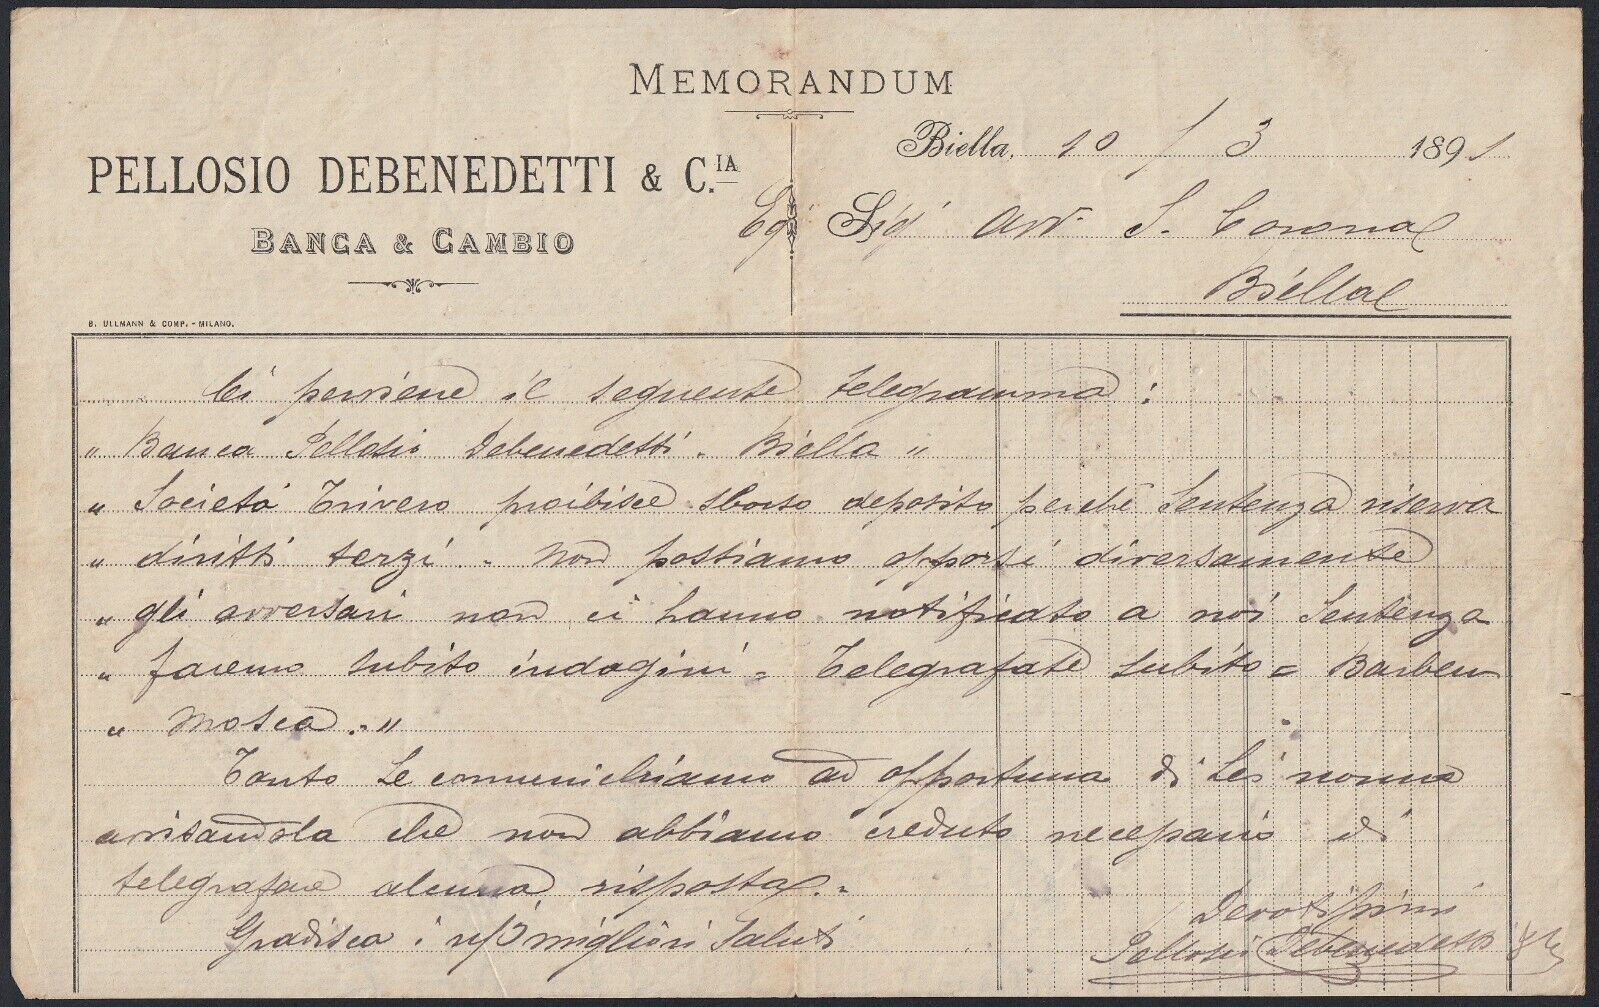 MEMORANDUM
Biella, 10 / 3 1891
PELLOSIO DEBENEDETTI & C.IA
BANCA & CAMBIO
Eg. Sig. Avv. S. Corona
Biella
B. ULLMANN & COMP. - MILANO.
Ci perviene il seguente telegramma :
" Banca Pellosio Debenedetti - Biella "
" Società Trivero proibisce sborso deposito perchè Sentenza riserva
" diritti terzi . - Non possiamo opporsi diversamente
" gli avversari non ci hanno notificato a noi Sentenza
" faremo subito indagini = Telegrafate subito = Barberi
" Mosca . - "
Tanto Le comunichiamo ad opportuna di Lei norma
avvisandola che non abbiamo creduto necessario di
telegrafare alcuna risposta . -
Gradisca i migliori Saluti
Devotissimi
Pellosio Debenedetti